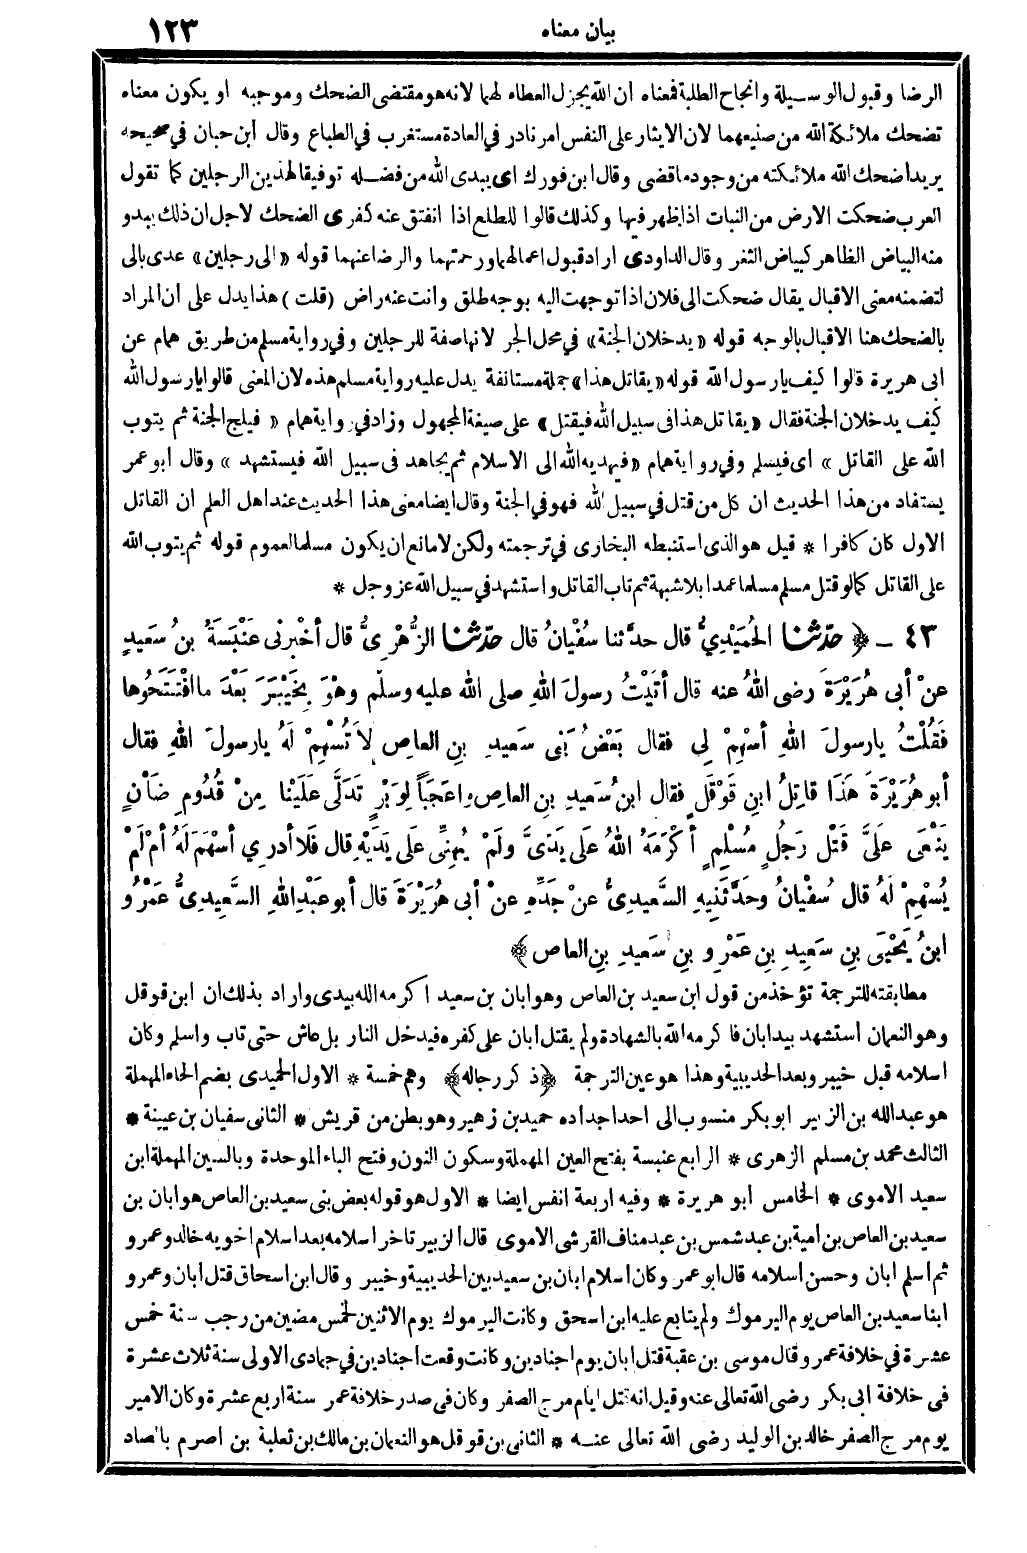 بيان معناه ١٢٣
الرضا وقبول الوسيلة وانجاح الطلبة فمعناه ان الله يجزل العطاء لهما لانه هو مقتضى الضحك وموجبه او يكون معناه
تضحك ملائكة الله من صنيعهما لان الايثار على النفس امر نادر في العادة مستغرب في الطباع وقال ابن حبان في صحيحه
يريد أضحك الله ملائكته من وجود ماقضى وقال ابن فورك اى يبدى الله من فضله توفيقا لهذين الرجلين كما تقول
العرب ضحكت الارض من النبات اذا ظهر فيها وكذلك قالوا للطلع اذا انفتق عنه كفرى الضحك لاجل ان ذلك يبدو
منه البياض الظاهر كبياض الثغر وقال الداودى اراد قبول اعمالهما ورحمتهما والرضا عنهما قوله «الى رجلين» عدى بالى
لتضمنه معنى الاقبال يقال ضحكت الى فلان اذا توجهت اليه بوجه طلق وانت عنه راض (قلت) هذا يدل على ان المراد
بالضحك هنا الاقبال بالوجه قوله «يدخلان الجنة» في محل الجر لانها صفة للرجلين وفي رواية مسلم من طريق همام عن
ابى هريرة قالوا كيف يارسول الله قوله «يقاتل هذا» جملة مستانفة يدل عليه رواية مسلم هذه لان المعنى قالوا يارسول الله
كيف يدخلان الجنة فقال «يقاتل هذا فى سبيل الله فيقتل» على صيغة المجهول وزاد في رواية همام «فيلج الجنة ثم يتوب
الله على القاتل» اى فيسلم وفي رواية همام «فيهديه الله الى الاسلام ثم يجاهد فى سبيل الله فيستشهد» وقال أبو عمر
يستفاد من هذا الحديث ان كل من قتل في سبيل الله فهو في الجنة وقال ايضا معنى هذا الحديث عند اهل العلم ان القاتل
الاول كان كافرا * قيل هو الذى استنبطه البخارى في ترجمته ولكن لا مانع ان يكون مسلما لعموم قوله ثم يتوب الله
على القاتل كما لو قتل مسلم مسلما عمدا بلا شبهة ثم تاب القاتل واستشهد في سبيل الله عز وجل *
٤٣ - ﴿ حدّثنا الحُمَيْدِيُّ قال حدَّثنا سُفْيانُ قال حدّثنا الزُّهْرِىُّ قال أخْبرنى عَنْبَسَةُ بنُ سَعيدٍ
عنْ أبى هُرَيْرَةَ رضى اللهُ عنه قال أتَيْتُ رسولَ اللهِ صلى الله عليه وسلّم وهْوَ بِخَيْبَرَ بَعْدَ ماافْتَتَحُوها
فَقُلْتُ يارسولَ اللهِ أسْهِمْ لِي فقال بَعْضُ بَنى سَعيدِ بنِ العاصِ لاَ تُسْهِمْ لَهُ يارسولَ اللهِ فقال
أبو هُرَيْرَةَ هَذَا قاتِلُ ابنِ قَوْقَلٍ فقال ابنُ سَعيدِ بنِ العاصِ واعَجَباً لِوَبْرٍ تَدَلَّى عَلَيْنا مِنْ قُدُومِ ضَأْنٍ
يَنْعَى عَلَىَّ قَتْلَ رَجُلٍ مُسْلِمٍ أكْرَمَهُ اللهُ عَلَى يَدَىَّ ولَمْ يُهِنِّى عَلَى يَدَيْهِ قال فَلاَ أدرِي أسْهَمَ لَهُ أمْ لَمْ
يُسْهِمْ لَهُ قال سُفْيانُ وحَدَّثَنيهِ السَّعيدِىُّ عنْ جَدِّهِ عنْ أبى هُرَيْرَةَ قال أبو عَبْدِ اللهِ السَّعِيدِىُّ عَمْرُو
ابنُ يَحْيَى بنِ سَعِيدِ بنِ عَمْرِو بنِ سَعيدِ بنِ العاص ﴾
مطابقته للترجمة تؤخذ من قول ابن سعيد بن العاص وهو ابان بن سعيد اكرمه الله بيدى واراد بذلك ان ابن قوقل
وهو النعمان استشهد بيد ابان فاكرمه الله بالشهادة ولم يقتل ابان على كفره فيدخل النار بل عاش حتى تاب واسلم وكان
اسلامه قبل خيبر وبعد الحديبية وهذا هو عين الترجمة ﴿ذكر رجاله﴾ وهم خمسة * الاول الحميدى بضم الحاء المهملة
هو عبد الله بن الزبير ابو بكر منسوب الى احد اجداده حميد بن زهير وهو بطن من قريش * الثانى سفيان بن عيينة *
الثالث محمد بن مسلم الزهرى * الرابع عنبسة بفتح العين المهملة وسكون النون وفتح الباء الموحدة وبالسين المهملة ابن
سعيد الاموى * الخامس أبو هريرة * وفيه اربعة انفس ايضا * الاول هو قوله بعض بنى سعيد بن العاص هو ابان بن
سعيد بن العاص بن أمية بن عبد شمس بن عبد مناف القرشى الاموى قال الزبير تاخر اسلامه بعد اسلام اخويه خالد وعمرو
ثم اسلم ابان وحسن اسلامه قال ابو عمر وكان اسلام ابان بن سعيد بين الحديبية وخيبر وقال ابن اسحاق قتل ابان وعمرو
ابنا سعيد بن العاص يوم اليرموك ولم يتابع عليه ابن اسحق وكانت اليرموك يوم الاثنين لخمس مضين من رجب سنة خمس
عشرة في خلافة عمر وقال موسى بن عقبة قتل ابان يوم اجنادين وكانت وقعت اجنادين في جمادى الاولى سنة ثلاث عشرة
فى خلافة ابى بكر رضى الله تعالى عنه وقيل انه قتل ايام مرج الصفر وكان فى صدر خلافة عمر سنة اربع عشرة وكان الامير
يوم مرج الصفر خالد بن الوليد رضى الله تعالى عنه * الثانى بن قوقل هو النعمان بن مالك بن ثعلبة بن اصرم بالصاد